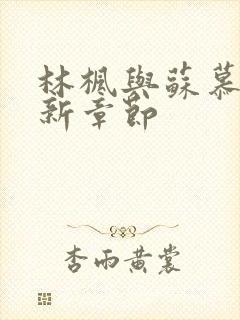 林楓與蘇慕
新章節
杏雨黃裳